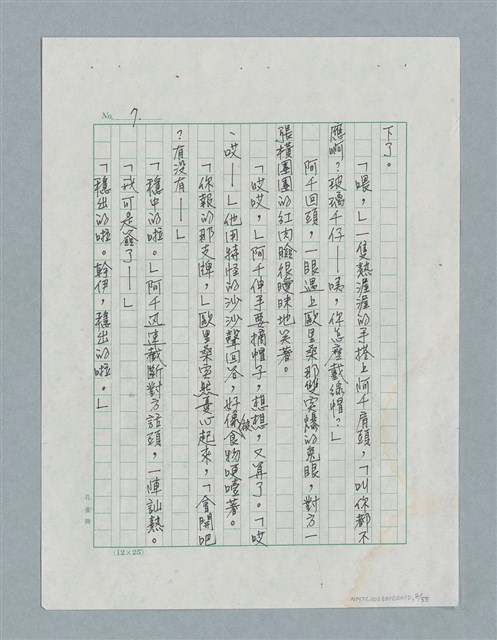 No. 7.
下了。
「喂,」一隻熱渥渥的手搭上阿千肩頭,「叫你都不
應啊?玻璃千仔——咦,你怎麼戴線帽?」
阿千回頭,一眼遇上歐里桑那雙突爆的鬼眼,對方一
張橫團團的紅肉臉很曖昧地笑著。
「哎哎,」阿千伸手要摘帽子,想想,又算了。「哎
、哎——」他用特怪的沙沙聲回答,好像被食物哽噎著。
「你報的那支牌,」歐里桑突然憂心起來,「會開吧
?有沒有——」
「穩中的啦。」阿千迅速截斷對方話頭,一陣訕熱。
「我可是簽了——」
「穩出的啦。幹伊,穩出的啦。」
(12×25)